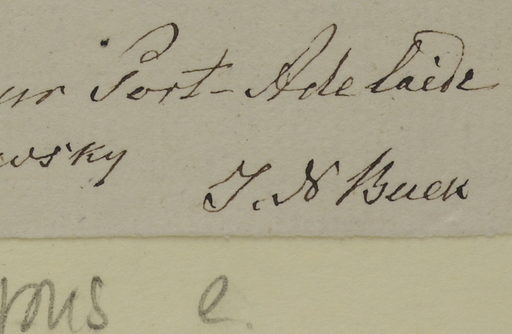 ur Port-Adelaide
wsky
J. N Buek
ous e.